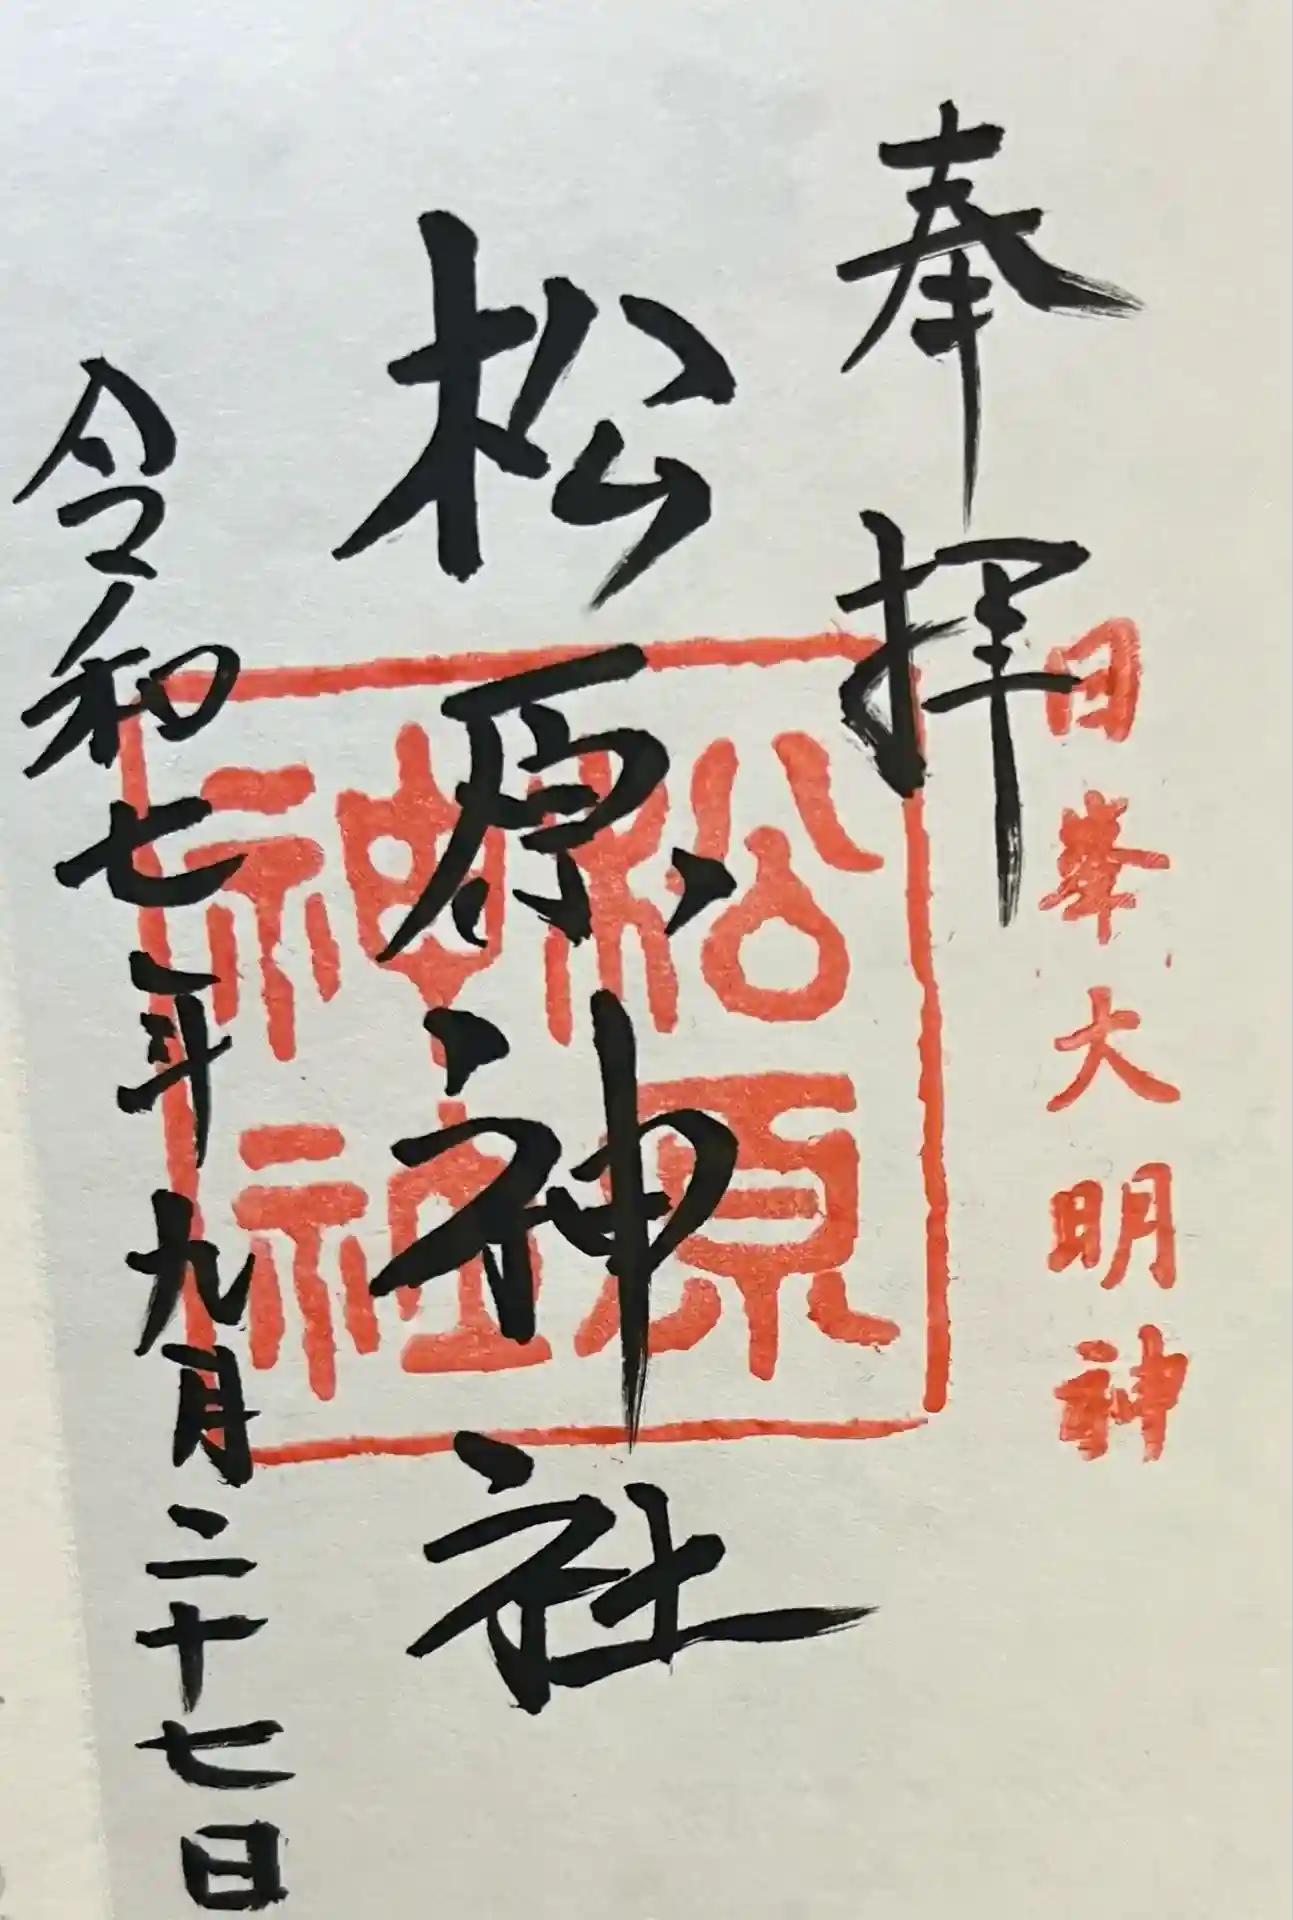 日峯大明神
奉拝
松原神社
松原
神社
令和七年九月二十七日